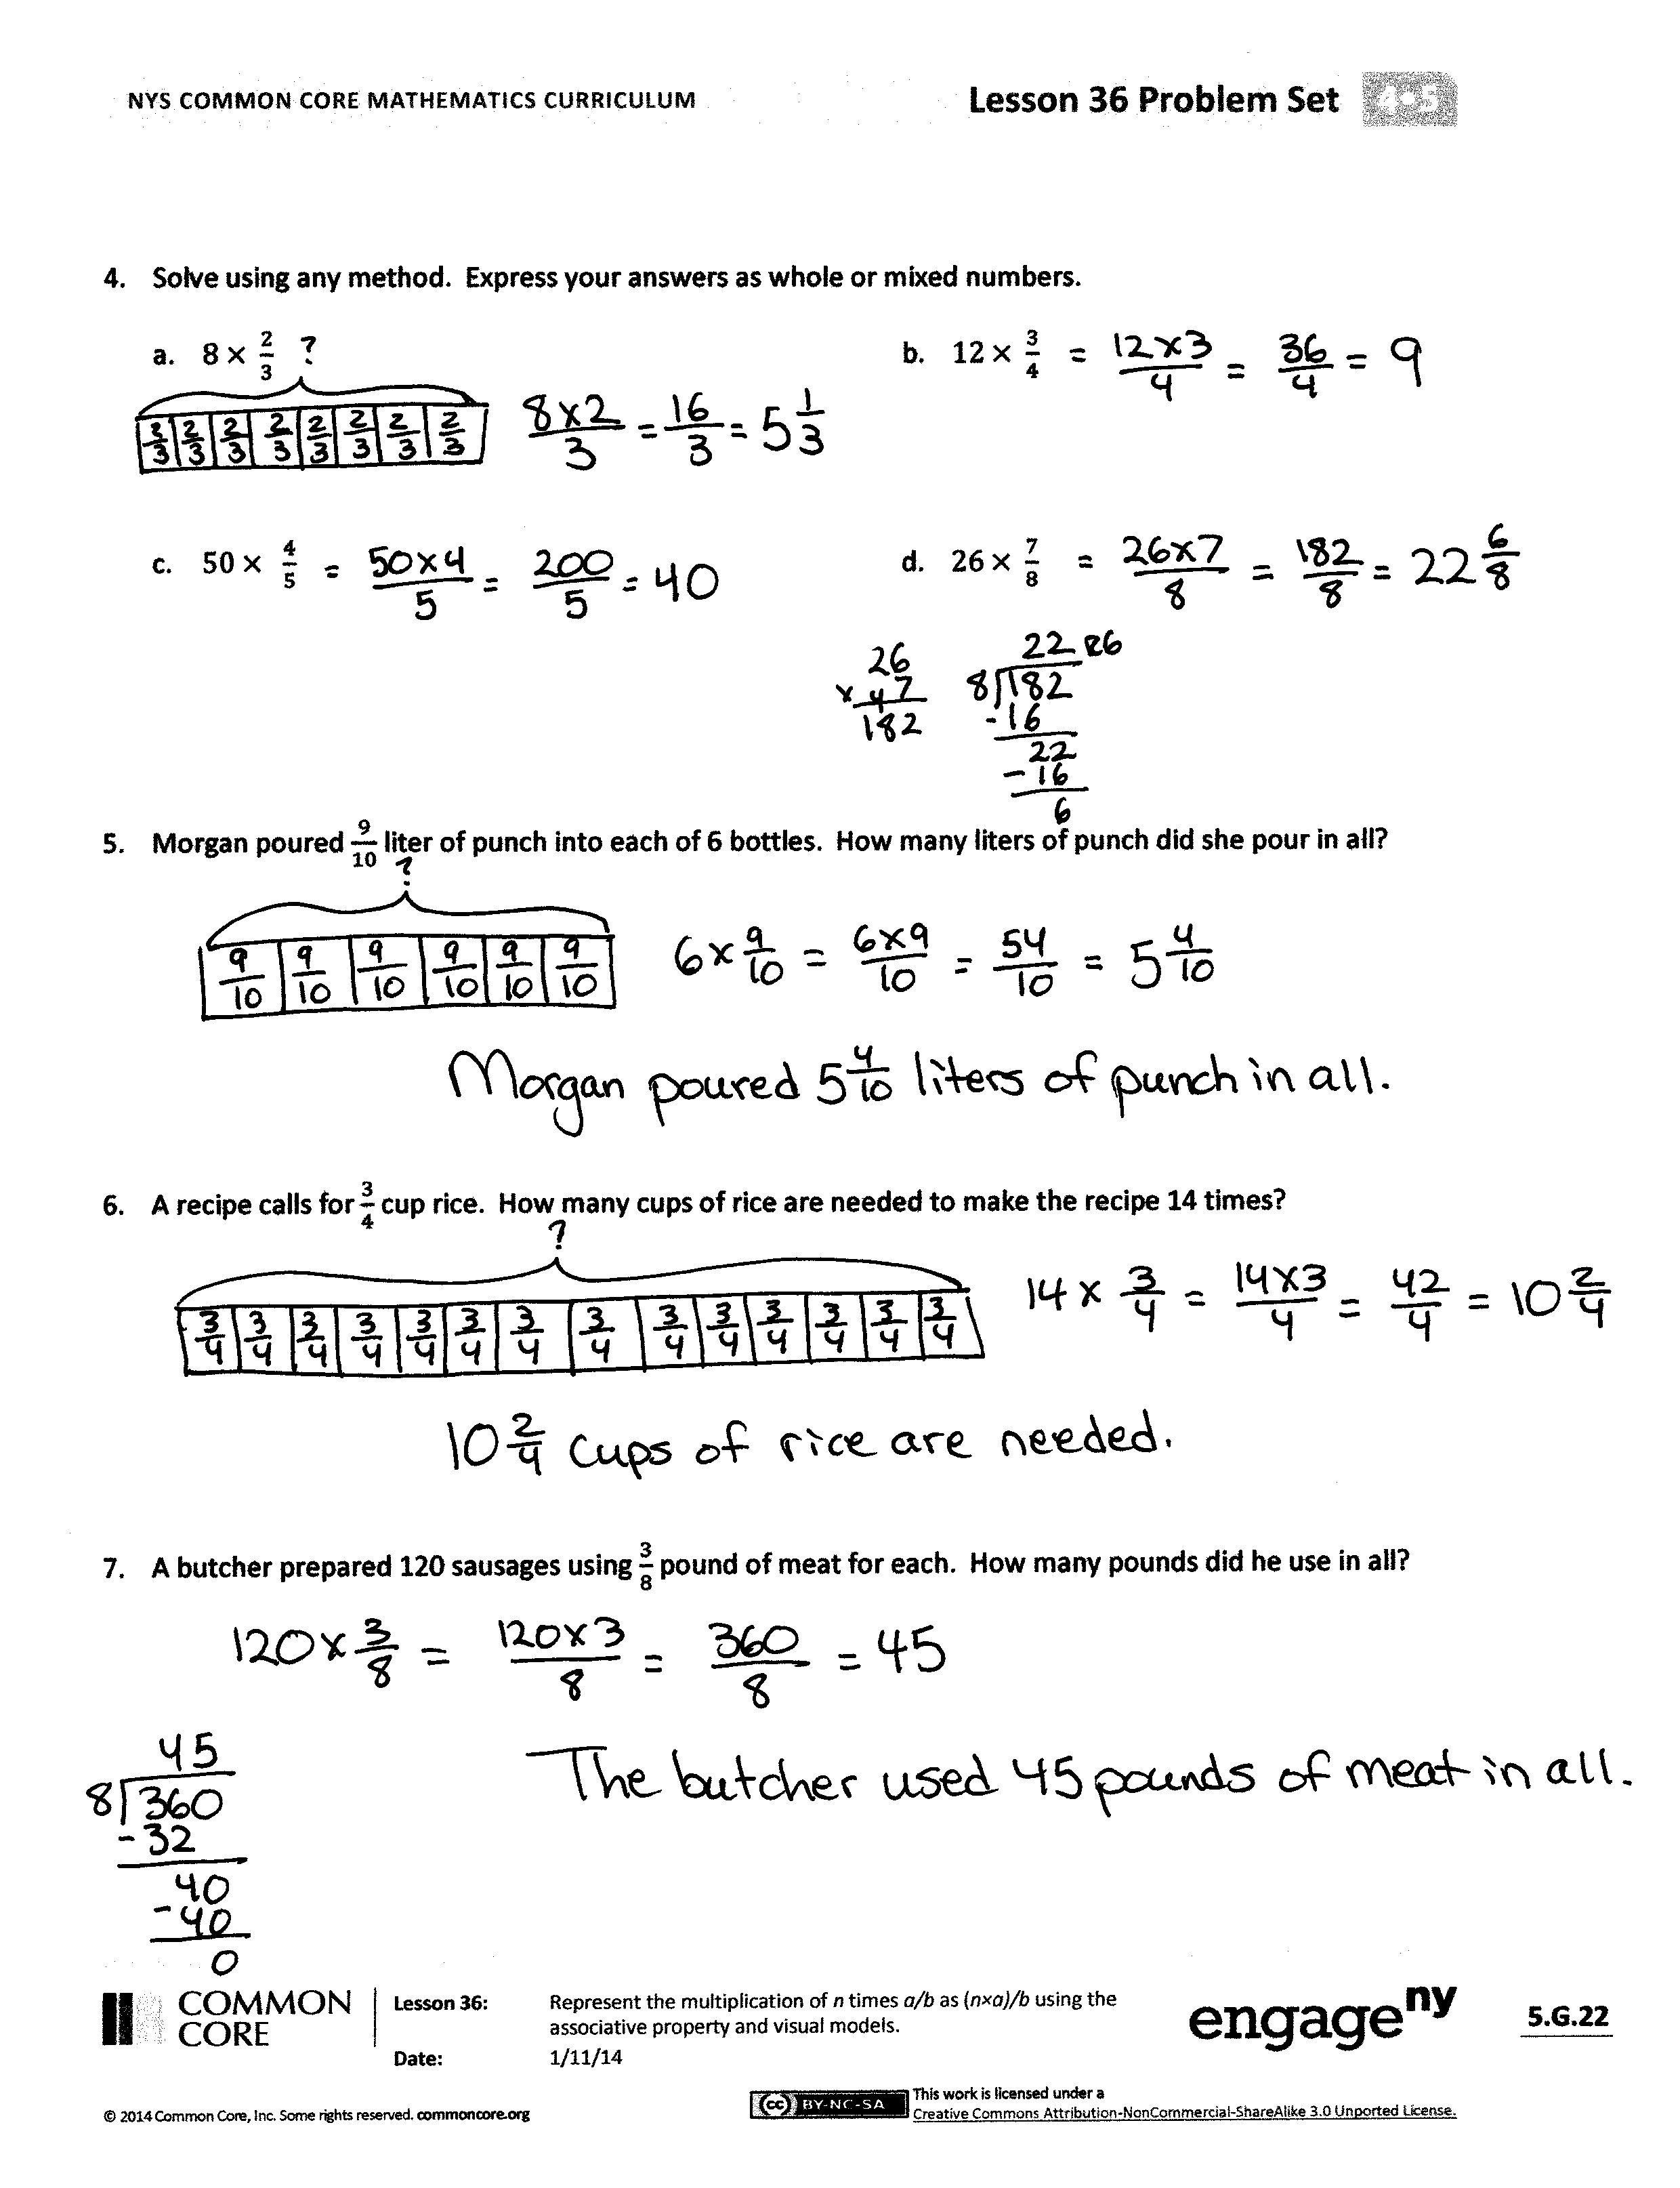 NYS COMMON CORE MATHEMATICS CURRICULUM Lesson 36 Problem Set 4•5
4. Solve using any method. Express your answers as whole or mixed numbers.
a. 8 × 2/3 ?
2/3 2/3 2/3 2/3 2/3 2/3 2/3 2/3 8×2/3 = 16/3 = 5 1/3
b. 12 × 3/4 = 12×3/4 = 36/4 = 9
c. 50 × 4/5 = 50×4/5 = 200/5 = 40
d. 26 × 7/8 = 26×7/8 = 182/8 = 22 6/8
26
× 4 7
182
22 R6
8 182
-16
22
-16
6
5. Morgan poured 9/10 liter of punch into each of 6 bottles. How many liters of punch did she pour in all?
?
9/10 9/10 9/10 9/10 9/10 9/10 6 × 9/10 = 6×9/10 = 54/10 = 5 4/10
Morgan poured 5 4/10 liters of punch in all.
6. A recipe calls for 3/4 cup rice. How many cups of rice are needed to make the recipe 14 times?
?
3/4 3/4 3/4 3/4 3/4 3/4 3/4 3/4 3/4 3/4 3/4 3/4 3/4 3/4 14 × 3/4 = 14×3/4 = 42/4 = 10 2/4
10 2/4 cups of rice are needed.
7. A butcher prepared 120 sausages using 3/8 pound of meat for each. How many pounds did he use in all?
120 × 3/8 = 120×3/8 = 360/8 = 45
45
8 360
-32
40
-40
0
The butcher used 45 pounds of meat in all.
COMMON CORE
Lesson 36: Represent the multiplication of n times a/b as (n×a)/b using the
associative property and visual models.
Date: 1/11/14
engageny
5.G.22
© 2014 Common Core, Inc. Some rights reserved. commoncore.org
cc BY-NC-SA
This work is licensed under a
Creative Commons Attribution-NonCommercial-ShareAlike 3.0 Unported License.